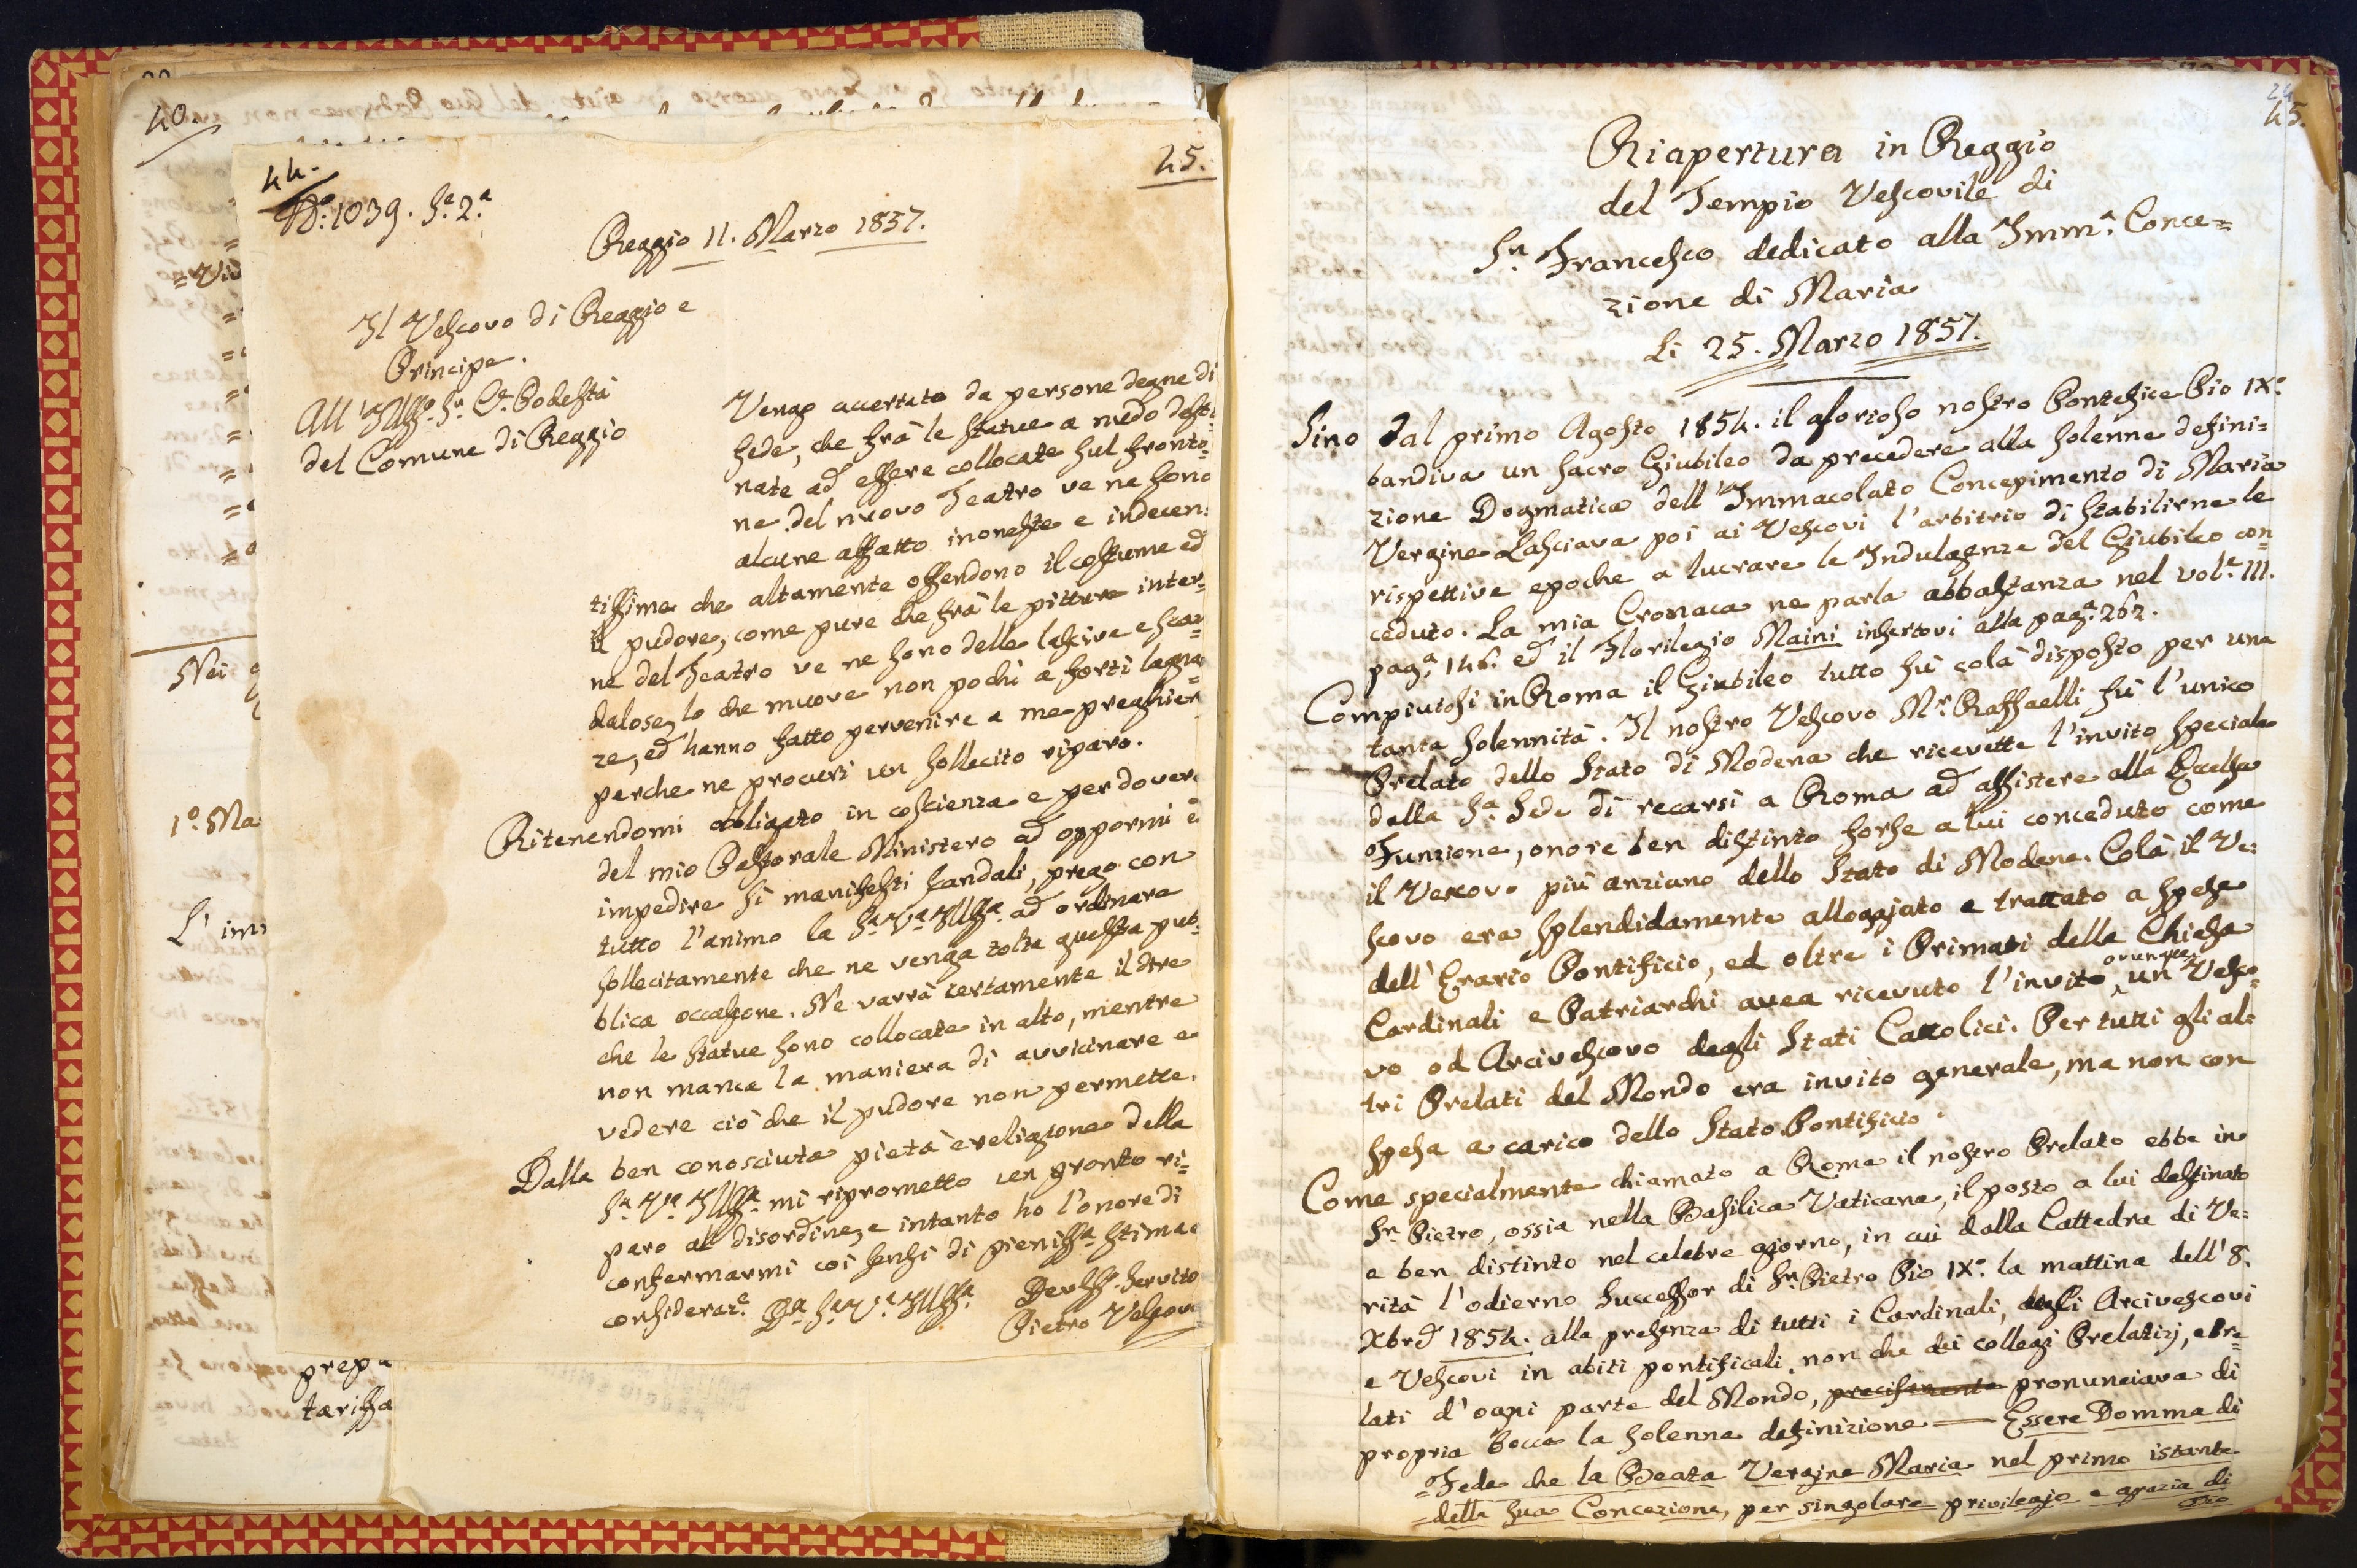 40.
= Viv
Nei
1.° Ma
L' im
prepa
tariffa
44.
N.° 1039. S.e 2.a
45.
Reggio 11. Marzo 1857.
Il Vescovo di Reggio e
Principe.
All'Illmo. Sr. Ce. Podestà
del Comune di Reggio
Vengo accertato da persone degne di
fede, che frà le statue a nudo desti=
nate ad essere collocate sul fronto=
ne del nuovo Teatro ve ne sono
alcune affatto inoneste e indecen=
tissime che altamente offendono il costume ed
il pudore, come pure che frà le pitture inter=
ne del Teatro ve ne sono delle lascive e scan=
dalose, lo che muove non pochi a forti lagnan=
ze, ed hanno fatto pervenire a me preghiere
perche ne procuri un sollecito riparo.
Ritenendomi obligato in coscienza e per dovere
del mio Pastorale Ministero ad oppormi e
impedire sì manifesti scandali, prego con
tutto l'animo la S.a V.a Illma. ad ordinare
sollecitamente che ne venga tolta questa pub=
blica occasione. Ne varrà certamente il dire
che le statue sono collocate in alto, mentre
non manca la maniera di avvicinare e
vedere ciò che il pudore non permette.
Dalla ben conosciuta pietà e religione della
S.a V.a Illma. mi riprometto un pronto ri=
paro al disordine, e intanto ho l'onore di
confermarmi coi sensi di pienissa. stima e
consideraze. Da. S.a V.a Illma.
Devmo. Servito
Pietro Vescovo
24
45.
Riapertura in Reggio
del Tempio Vescovile di
Sn. Francesco dedicato alla Imma. Conce=
zione di Maria
Li 25. Marzo 1857.
Sino dal primo Agosto 1854. il glorioso nostro Pontefice Pio IX.°
bandiva un sacro Giubileo da precedere alla solenne defini=
zione Dogmatica dell'Immacolato Concepimento di Maria
Vergine Lasciava poi ai Vescovi l'arbitrio di stabilirne le
rispettive epoche a lucrare le Indulgenze del Giubileo con=
ceduto. La mia Cronaca ne parla abbastanza nel vole. III.
paga. 146. ed il Florilegio Maini insertovi alla paga. 262.
Compiutosi in Roma il Giubileo tutto fù colà disposto per una
tanta solennità. Il nostro Vescovo Mr. Raffaelli fù l'unico
Prelato dello Stato di Modena che ricevette l'invito speciale
dalla Sa. Sede di recarsi a Roma ad assistere alla Eccelsa
Funzione, onore ben distinto forse a lui conceduto come
il Vescovo più anziano dello Stato di Modena. Colà il Ve=
scovo era splendidamente alloggiato e trattato a spese
dell'Erario Pontificio, ed oltre i Primati della Chiesa
Cardinali e Patriarchi avea ricevuto l'invito ovunque un Vesco=
vo od Arcivescovo degli Stati Cattolici. Per tutti gli al=
tri Prelati del Mondo era invito generale, ma non con
spesa a carico dello Stato Pontificio.
Come specialmente chiamato a Roma il nostro Prelato ebbe in
Sn. Pietro, ossia nella Basilica Vaticana, il posto a lui destinato
e ben distinto nel celebre giorno, in cui dalla Cattedra di Ve=
rità l'odierno Successor di Sn. Pietro Pio IX.° la mattina dell'8.
Xbre 1854. alla presenza di tutti i Cardinali, degli Arcivescovi
e Vescovi in abiti pontificali, non che dei collegi Prelatizj, e Pre=
lati d'ogni parte del Mondo, precisamente pronunciava di
propria bocca la solenne definizione — Essere Domma di
= Fede che la Beata Vergine Maria nel primo istante
= della sua Concezione, per singolare privilegio e grazia di
Dio